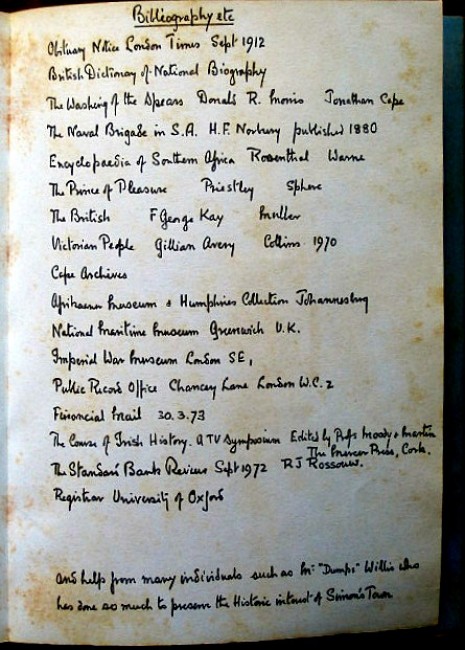 Bibliography etc
Obituary Notice London Times Sept 1912
British Dictionary of National Biography
The Washing of the Spears Donald R. Morris Jonathan Cape
The Naval Brigade in S.A. H.F. Norbury published 1880
Encyclopaedia of Southern Africa Rosenthal Warne
The Prince of Pleasure Priestley Sphere
The British F George Kay Muller
Victorian People Gillian Avery Collins 1970
Cape Archives
Africana Museum & Humphries Collection Johannesburg
National Maritime Museum Greenwich U.K.
Imperial War Museum London SE,
Public Record Office Chancey Lane London W.C. 2
Financial Mail 30.3.73
The Course of Irish History. A TV Symposium Edited by Profs Moody & Martin
The Mercier Press, Cork.
The Standard Bank Review Sept 1972 R J Rossouw.
Registrar University of Oxford
and help from many individuals such as Mr "Dumps" Willis who
has done so much to preserve the Historic interest of Simon's Town